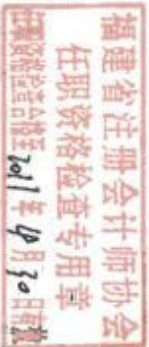 福建省注册会计师协会
任职资格检查专用章
资格检查合格至2011年4月30日